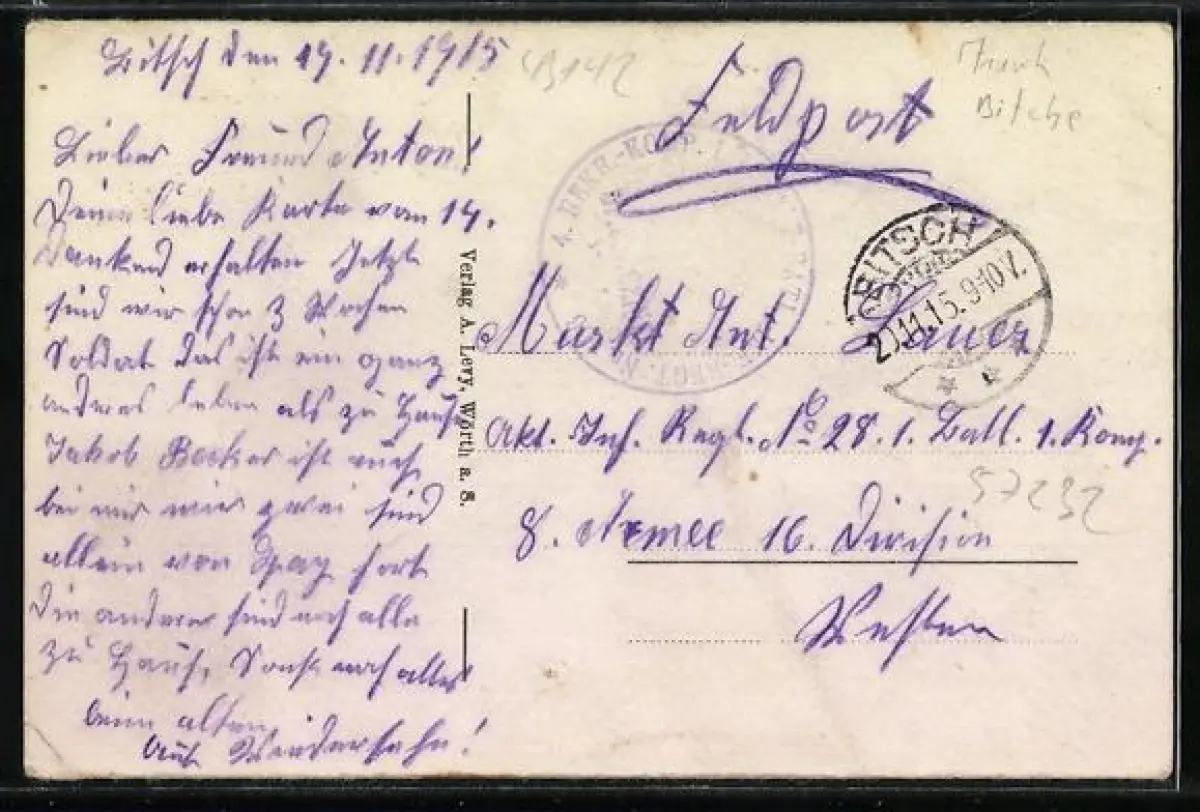 Bitsch den 19.11.1915
Lieber Freund Anton!
Deine liebe Karte vom 14.
dankend erhalten Jetzt
sind wir schon 3 Wochen
Soldat das ist ein ganz
anderes leben als zu Hause
Jakob Becker ist auch
bei mir wir zwei sind
allein von Spay fort
die anderen sind noch alle
zu Haus, Sonst noch alles
beim alten
Auf Wiedersehn!
Verlag A. Levy, Wörth a. S.
Feldpost
4. REKR.-KOMP.
BITSCH
20.11.15.9-10V.
Muskt Ant.
Akt. Inf. Regt. No 28. 1. Batl. 1. Komp.
8. Armee 16. Division
Westen
Bitche
57232